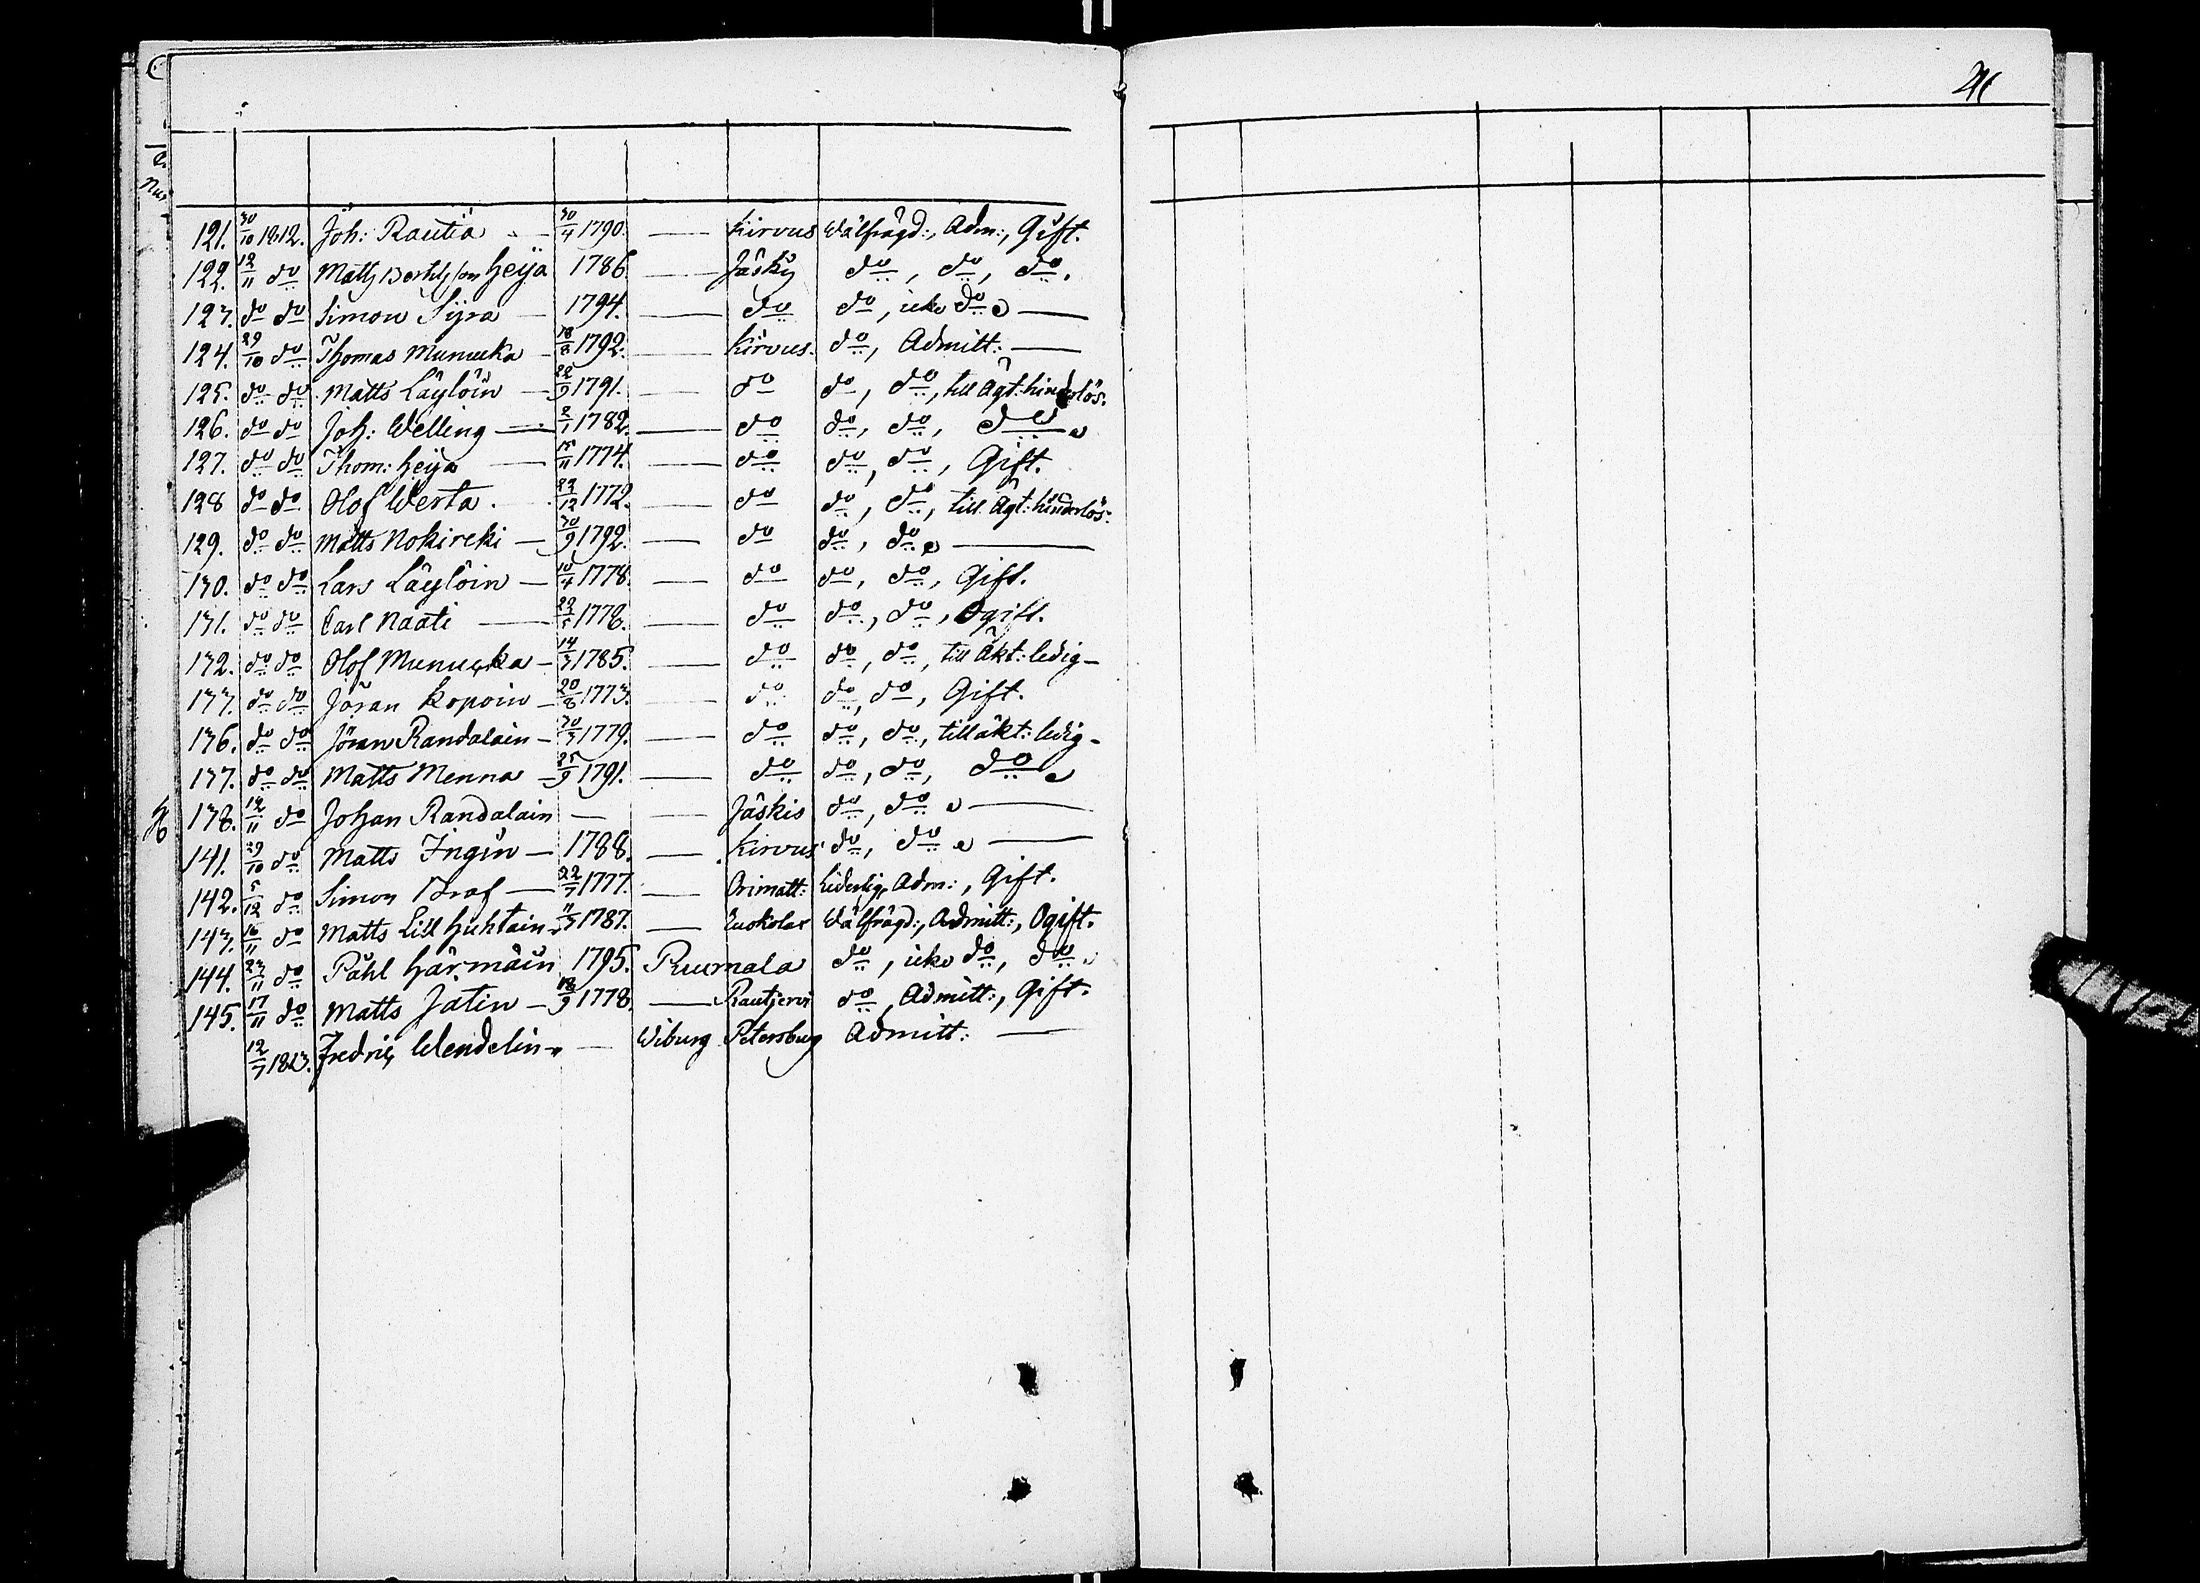 41
121. 30/10 1812. Joh: Rautia — 30/4 1790. — Kirvus Wälfrägd:, Adm:, Gift.
122. 12/11 do Matts Bertilsson Heijä 1786. — Jäskis do, do, do.
123. do do Simon Sijra — 1794. — do do, icke do —
124. 29/10 do Thomas Munucka — 18/8 1792. — Kirvus. do, Admitt: —
125. do do Matts Läylöin — 22/9 1791. — do do, do, till Ägt: hinderlös.
126. do do Joh: Welling — 2/7 1782. — do do, do, do
127. do do Thom: Heijä — 15/11 1774. — do do, do, Gift.
128 do do Olof Werta. 22/12 1772. — do do, do, till Ägt: hinderlös.
129. do do Matts Nokireki — 30/9 1792. — do do, do —
130. do do Lars Läylöin — 10/4 1778. — do do, do, Gift.
131. do do Carl Nääti — 22/5 1778. — do do, do, Ogift.
132. do do Olof Munucka — 14/3 1785. — do do, do, till Äkt: ledig —
133. do do Jöran Kopoin — 20/8 1773. — do do, do, Gift.
136. do do Jöran Randalain — 30/3 1779. — do do, do, till äkt: ledig —
137. do do Matts Menna — 25/9 1791. — do do, do, do
138. 12/11 do Johan Randalain — — Jäskis do, do —
141. 29/10 do Matts Ingin — 1788. — Kirvus do, do —
142. 5/12 do Simon Braf — 22/7 1777. — Orimatt: Liderlig, Adm:, Gift.
143. 16/11 do Matts Lill Huhtain — 11/7 1787. — Ruokolax Wälfrägd:, Admitt:, Ogift.
144. 23/11 do Påhl Härmäin 1795. Puumala do, icke do, do
145. 17/11 do Matts Jatin — 18/9 1778. — Rautjervi do, Admitt:, Gift.
12/7 1813. Fredric Wendelin — — Wiburg Petersburg Admitt: —